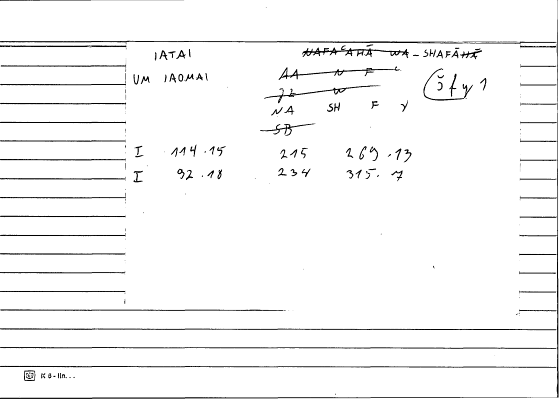 IATAI NAFAʿAHĀ WA-SHAFĀHĀ
UM IAOMAI AA N F ʿ
W
NA SH F Y
SB
šfy 1
I 114.15 215 269.13
I 92.18 234 315.7